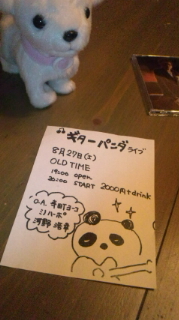 ギターパンダ ライブ
8月27日(土)
OLD TIME
19:00 open
20:00 START 2000円+drink
O.A. 寺町ヨーコ
河野